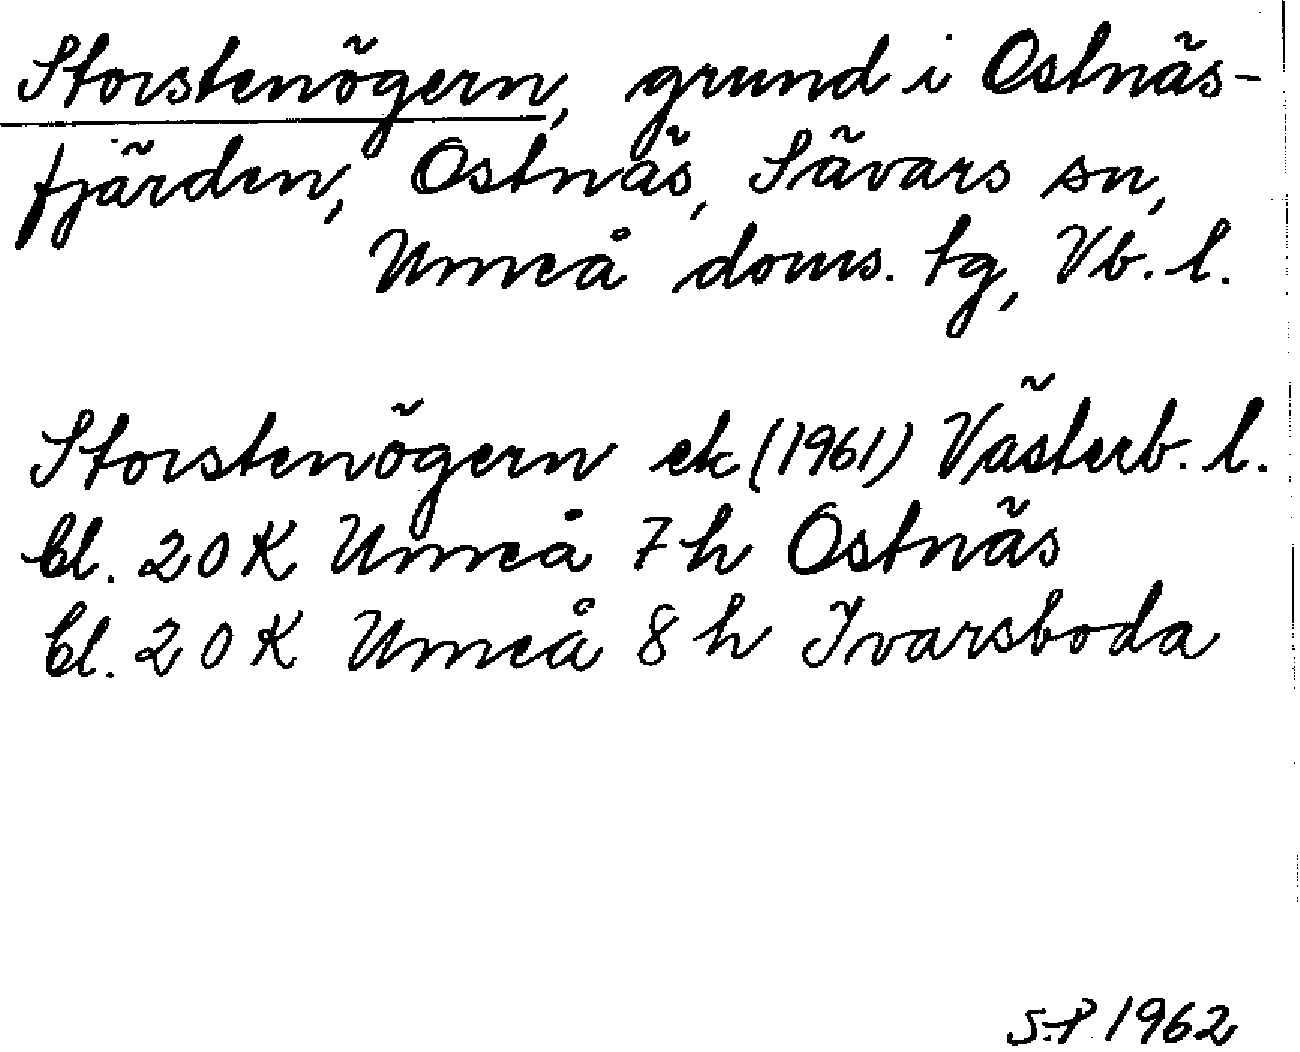 Storstenögern, grund i Ostnäs-
fjärden, Ostnäs, Sävars sn,
Umeå doms. tg, Vb. l.
Storstenögern ek (1961) Västerb. l.
bl. 20 K Umeå 7 h Ostnäs
bl. 20 K Umeå 8 h Ivarsboda
S.P. 1962